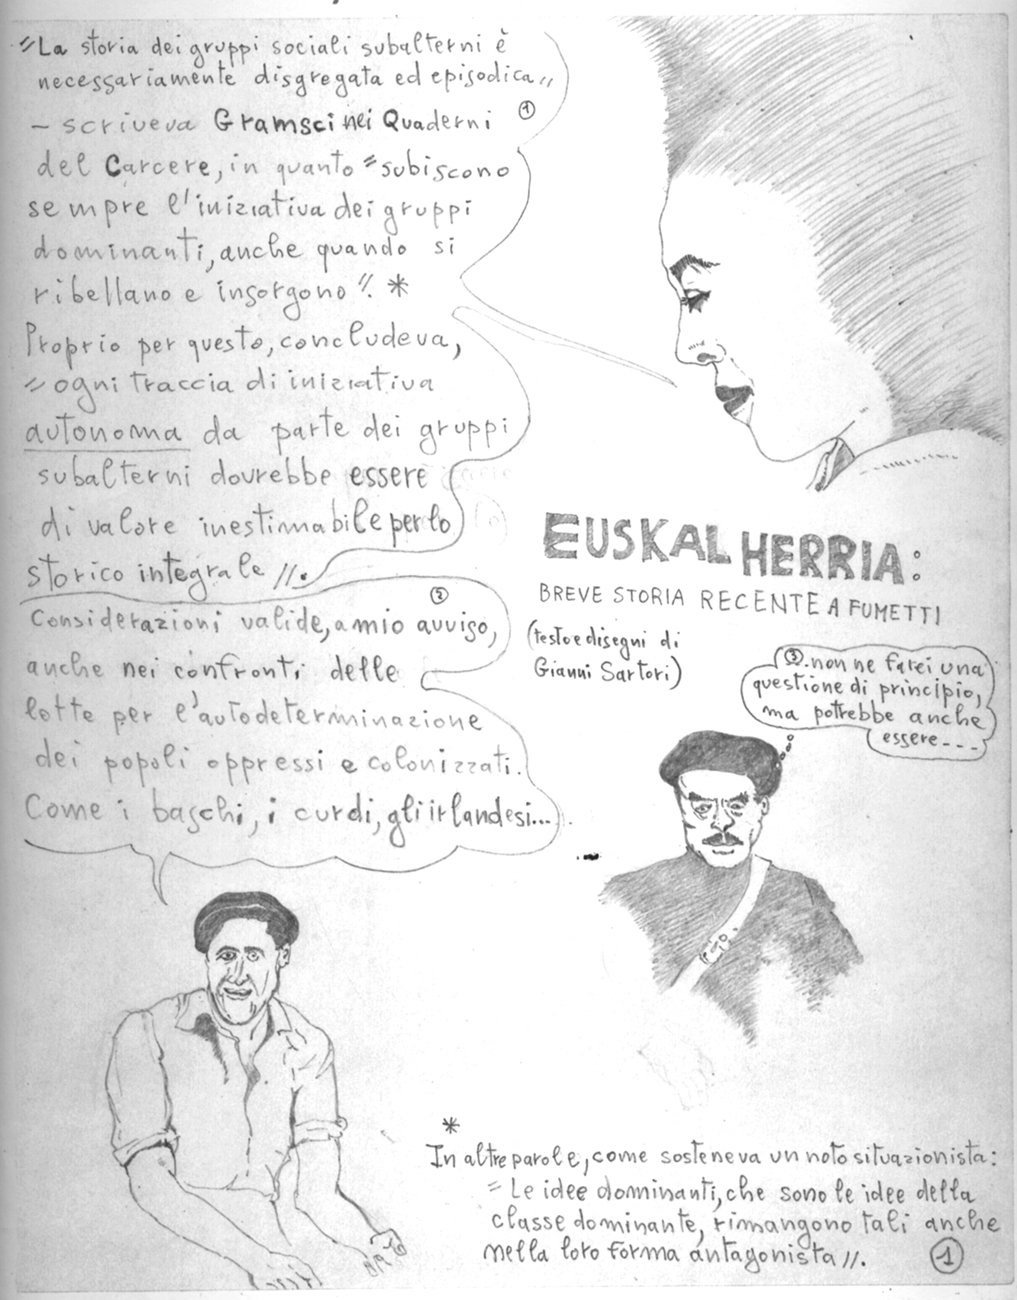 "La storia dei gruppi sociali subalterni è
necessariamente disgregata ed episodica"
①
– scriveva Gramsci nei Quaderni
del Carcere, in quanto "subiscono
sempre l'iniziativa dei gruppi
dominanti, anche quando si
ribellano e insorgono". *
Proprio per questo, concludeva,
"ogni traccia di iniziativa
autonoma da parte dei gruppi
subalterni dovrebbe essere
di valore inestimabile per lo
storico integrale".
②
Considerazioni valide, a mio avviso,
anche nei confronti delle
lotte per l'autodeterminazione
dei popoli oppressi e colonizzati.
Come i baschi, i curdi, gli irlandesi...
EUSKAL HERRIA:
BREVE STORIA RECENTE A FUMETTI
(testo e disegni di
Gianni Sartori)
③.non ne farei una
questione di principio,
ma potrebbe anche
essere---
*
In altre parole, come sosteneva un noto situazionista:
"Le idee dominanti, che sono le idee della
classe dominante, rimangono tali anche
nella loro forma antagonista".
①